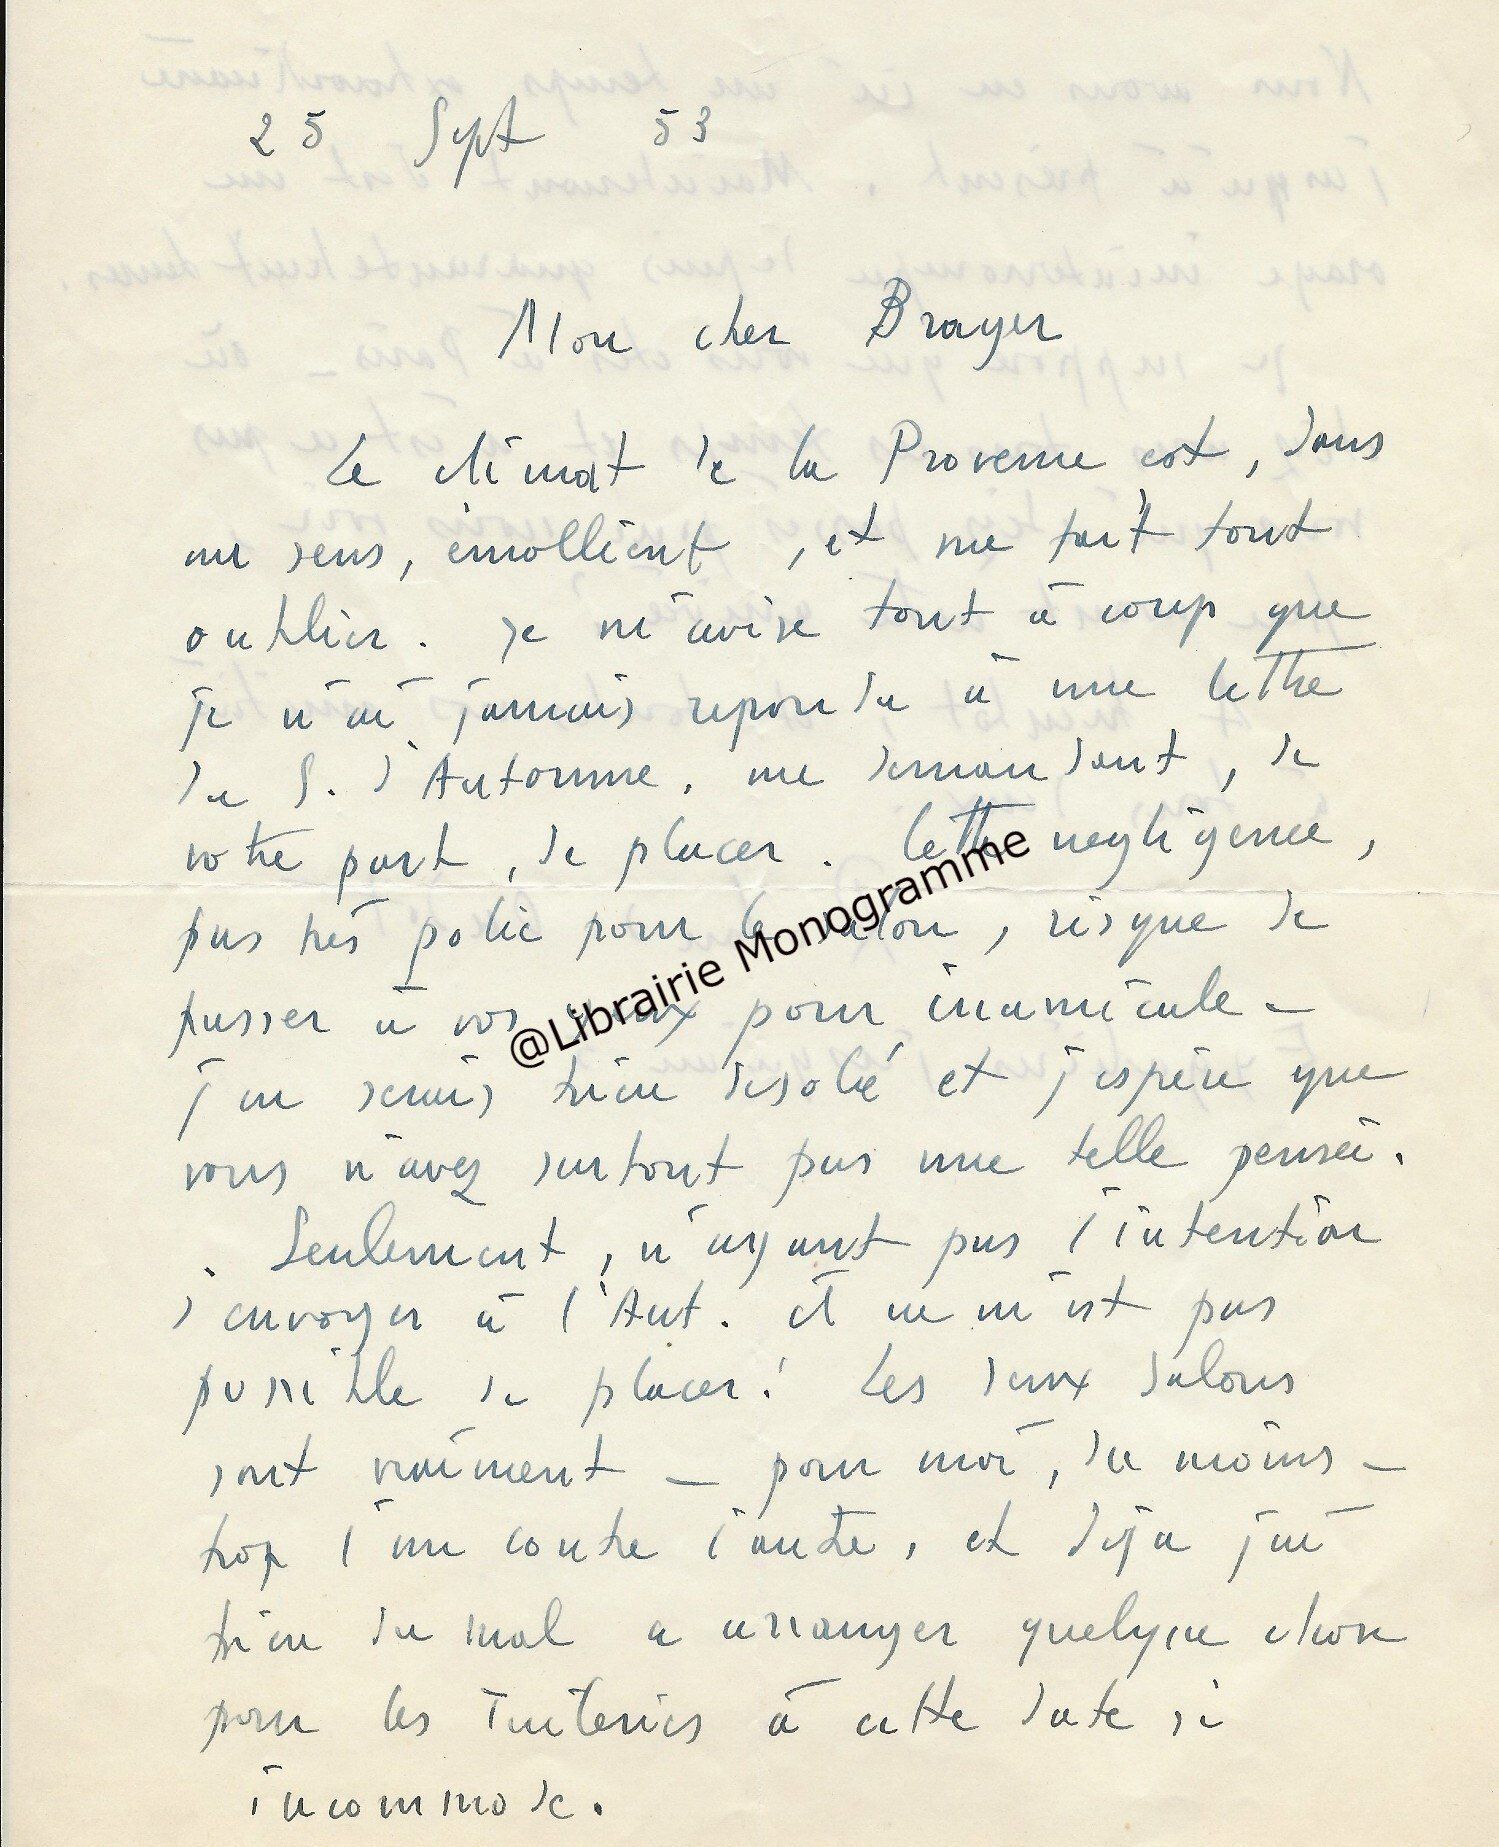 25 Sept 53
Mon cher Brayer
Le climat de la Provence est, dans
un sens, émollient, et me fait tout
oublier. Je m'avise tout à coup que
je n'ai jamais repondu à une lettre
du S. d'Automne, me demandant, de
votre part, de placer. Cette negligence,
pas très polie pour le salon, risque de
passer à vos yeux pour inamicale -
j'en serais bien desolé et j'espère que
vous n'avez surtout pas une telle pensée.
Seulement, n'ayant pas l'intention
d'envoyer à l'Aut. il ne m'est pas
possible de placer! Les deux Salons
sont vraiment - pour moi, du moins -
trop l'un contre l'autre, et deja j'ai
bien du mal a arranger quelque chose
pour les Tuileries à cette date si
incommode.
@Librairie Monogramme